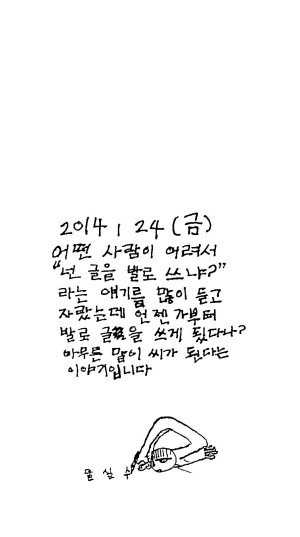 2014 1 24 (금)
어떤 사람이 어려서
"넌 글을 발로 쓰냐?"
라는 얘기를 많이 듣고
자랐는데 언젠가부터
발로 글을 쓰게 됐다나?
아무튼 말이 씨가 된다는
이야기입니다